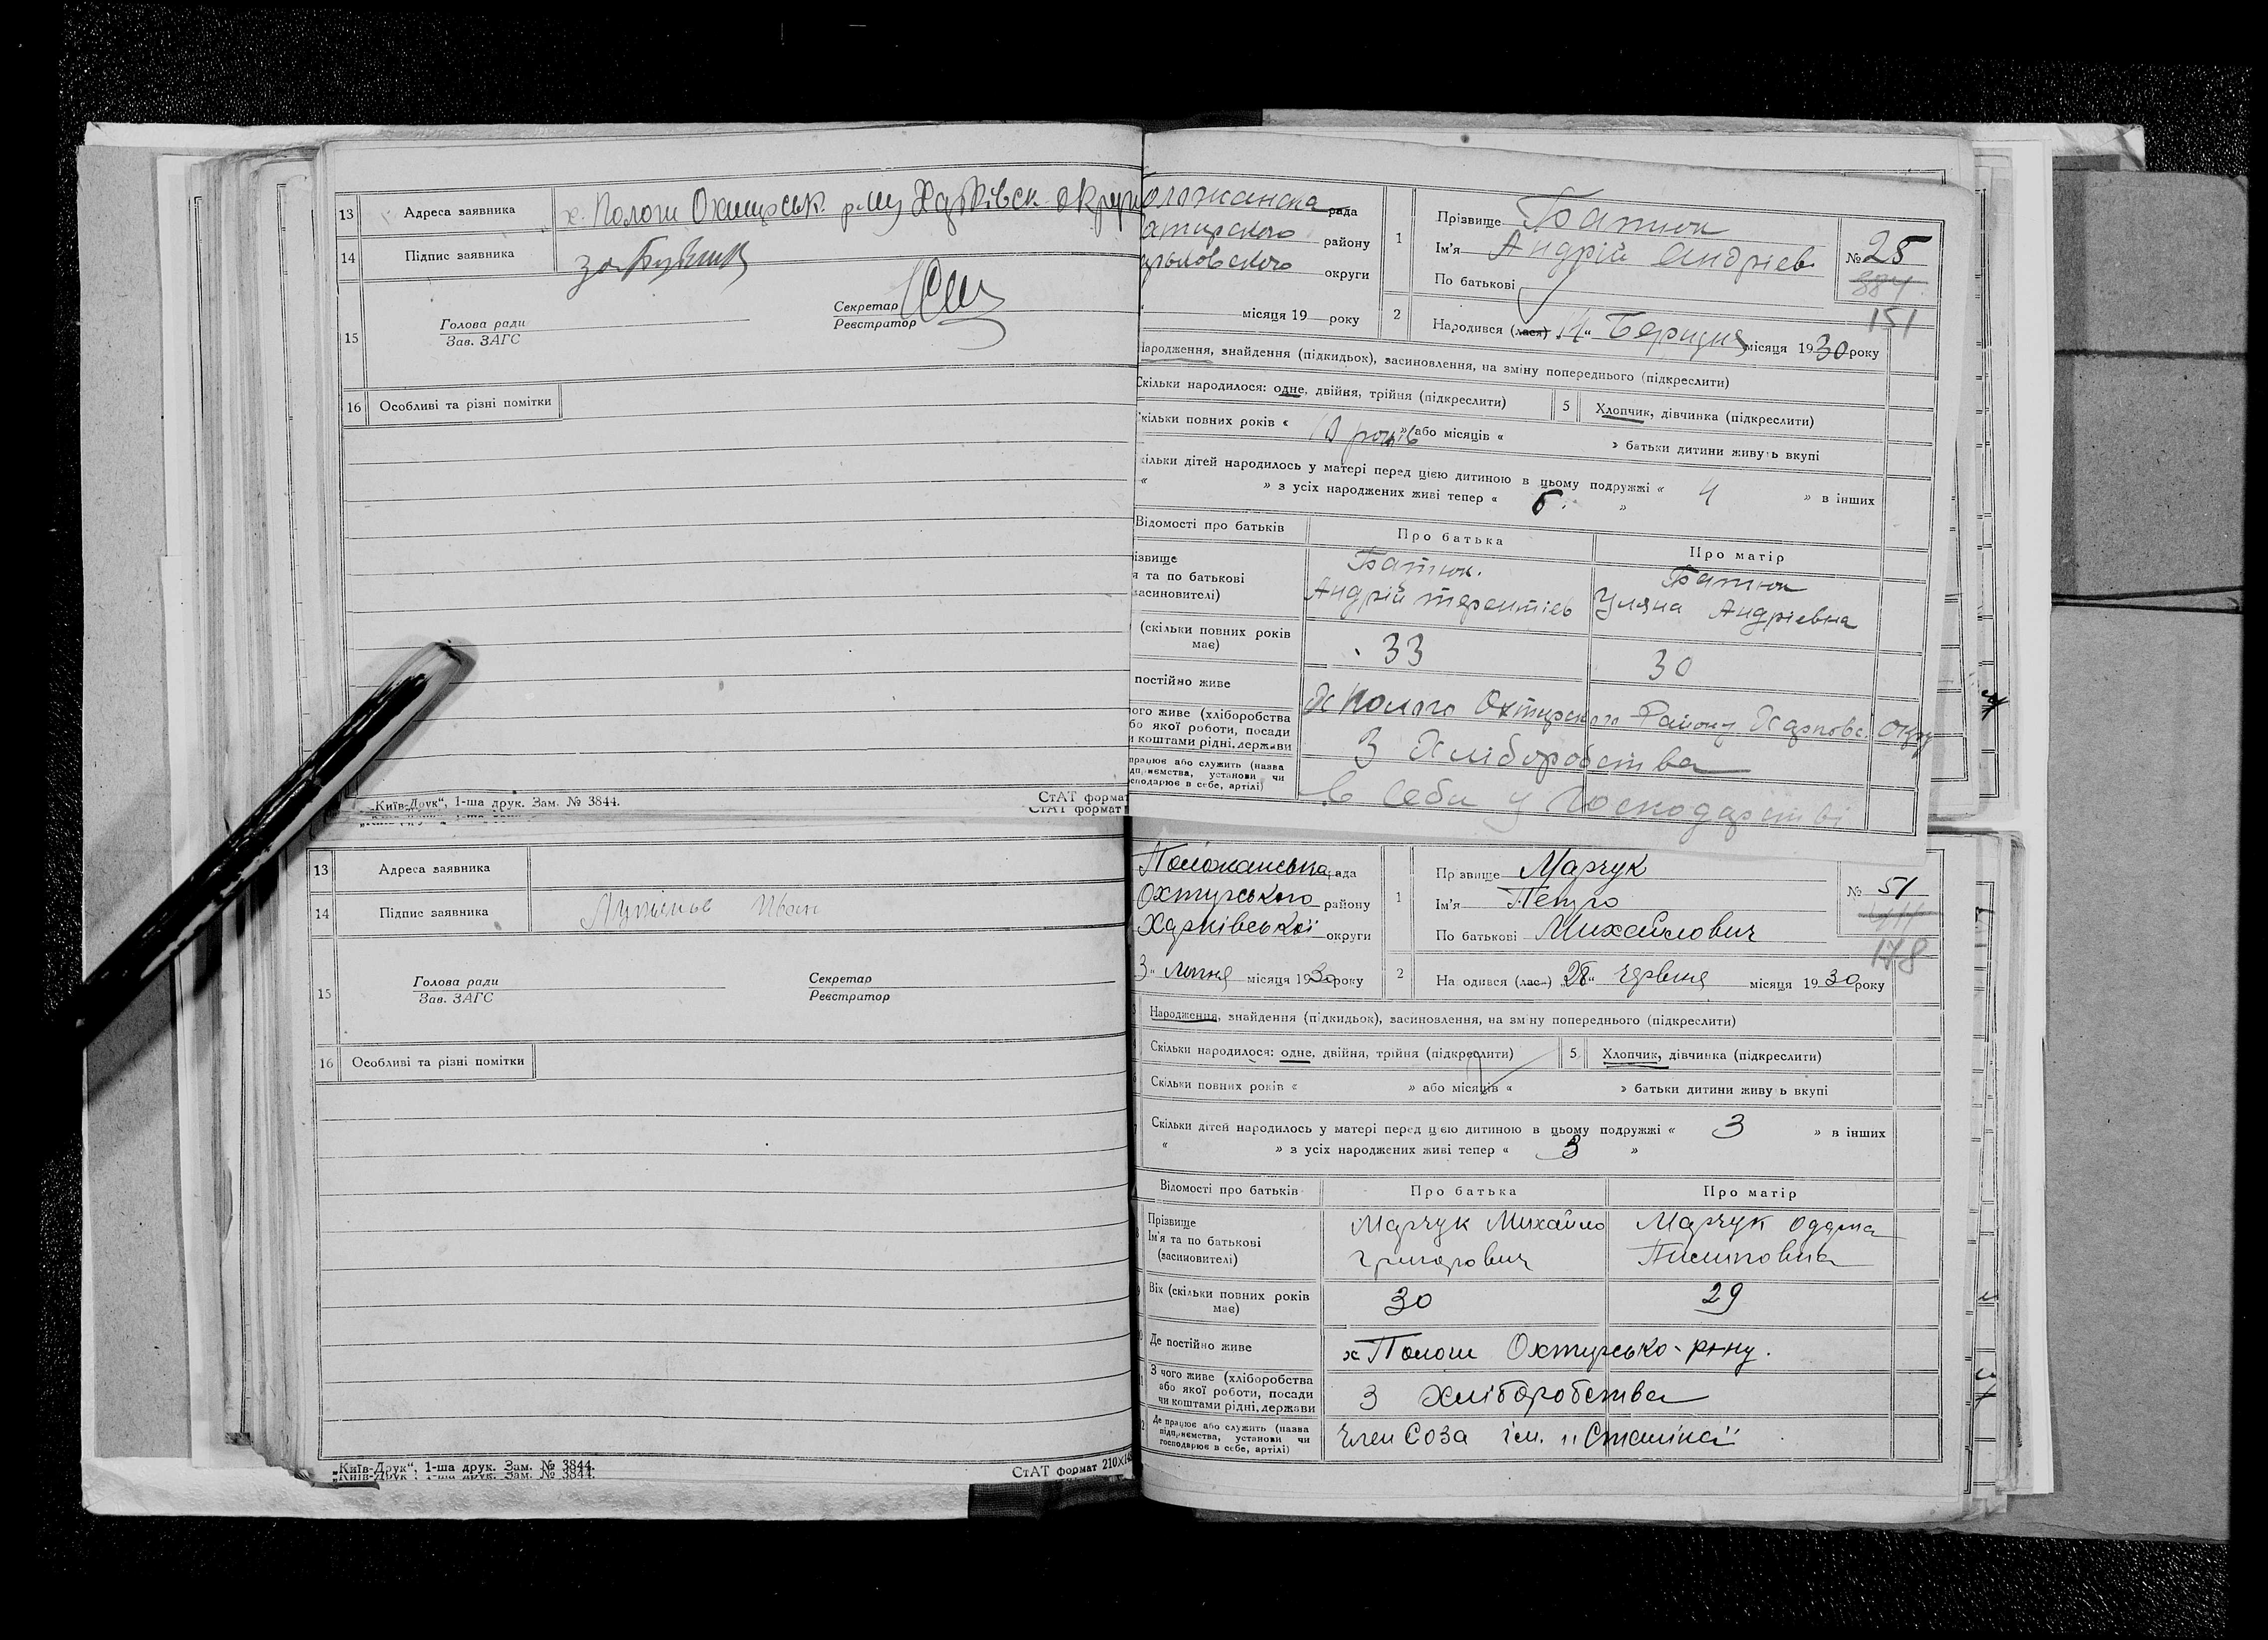 13 Адреса заявника х. Пологи Охтирськ. р-ну Харківськ. округи
14 Підпис заявника за
15 Голова ради Зав. ЗАГС Секретар Реєстратор
16 Особливі та різні помітки
„Київ-Друк“, 1-ша друк. Зам. № 3844. СтАТ формат
СТАТ формат
рада
району
округи
місяця 19 року
1 Прізвище Батюк
Ім'я Андрій Андрієв
По батькові
№ 25
151
2 Народився (лася) 14 Березня місяця 1930 року
Народження, знайдення (підкидьок), засиновлення, на зміну попереднього (підкреслити)
Скільки народилося: одне, двійня, трійня (підкреслити) 5 Хлопчик, дівчинка (підкреслити)
Скільки повних років « 10 років » або місяців « » батьки дитини живуть вкупі
Скільки дітей народилось у матері перед цією дитиною в цьому подружжі « 4 » в інших
« » з усіх народжених живі тепер « 5. »
Відомості про батьків Про батька Про матір
Батюк. Батюк
та по батькові Андрій терентієв Уляна Андрієвна
(засиновителі)
(скільки повних років має) 33 30
постійно живе х Пологи Охтирського Району Харковс. Округ
чого живе (хліборобства
або якої роботи, посади З Хліборобства
чи коштами рідні, держави
працює або служить (назва
підприємства, установи чи в себи у господарстві
господарює в себе, артілі)
13 Адреса заявника
14 Підпис заявника Іван
15 Голова ради Зав. ЗАГС Секретар Реєстратор
16 Особливі та різні помітки
„Київ-Друк“, 1-ша друк. Зам. № 3844. СтАТ формат 210×148
Положанська рада
Охтирського району
Харківської округи
3 „ липня місяця 1930 року
1 Прізвище Марчук
Ім'я Петро
По батькові Михайлович
№ 51
178
2 Народився (лась) „28“ червня місяця 1930 року
Народження, знайдення (підкидьок), засиновлення, на зміну попереднього (підкреслити)
Скільки народилося: одне, двійня, трійня (підкреслити) 5 Хлопчик, дівчинка (підкреслити)
Скільки повних років « » або місяців « » батьки дитини живуть вкупі
Скільки дітей народилось у матері перед цією дитиною в цьому подружжі « 3 » в інших
« » з усіх народжених живі тепер « 3 »
Відомості про батьків Про батька Про матір
Прізвище Марчук Михайло Марчук
Ім'я та по батькові Григорович
(засиновителі)
Вік (скільки повних років має) 30 29
Де постійно живе х Пологи Охтирсько-р-ну.
З чого живе (хліборобства
або якої роботи, посади З хліборобства
чи коштами рідні, держави
Де працює або служить (назва
підприємства, установи чи член Соза ім. „Сталіна“
господарює в себе, артілі)